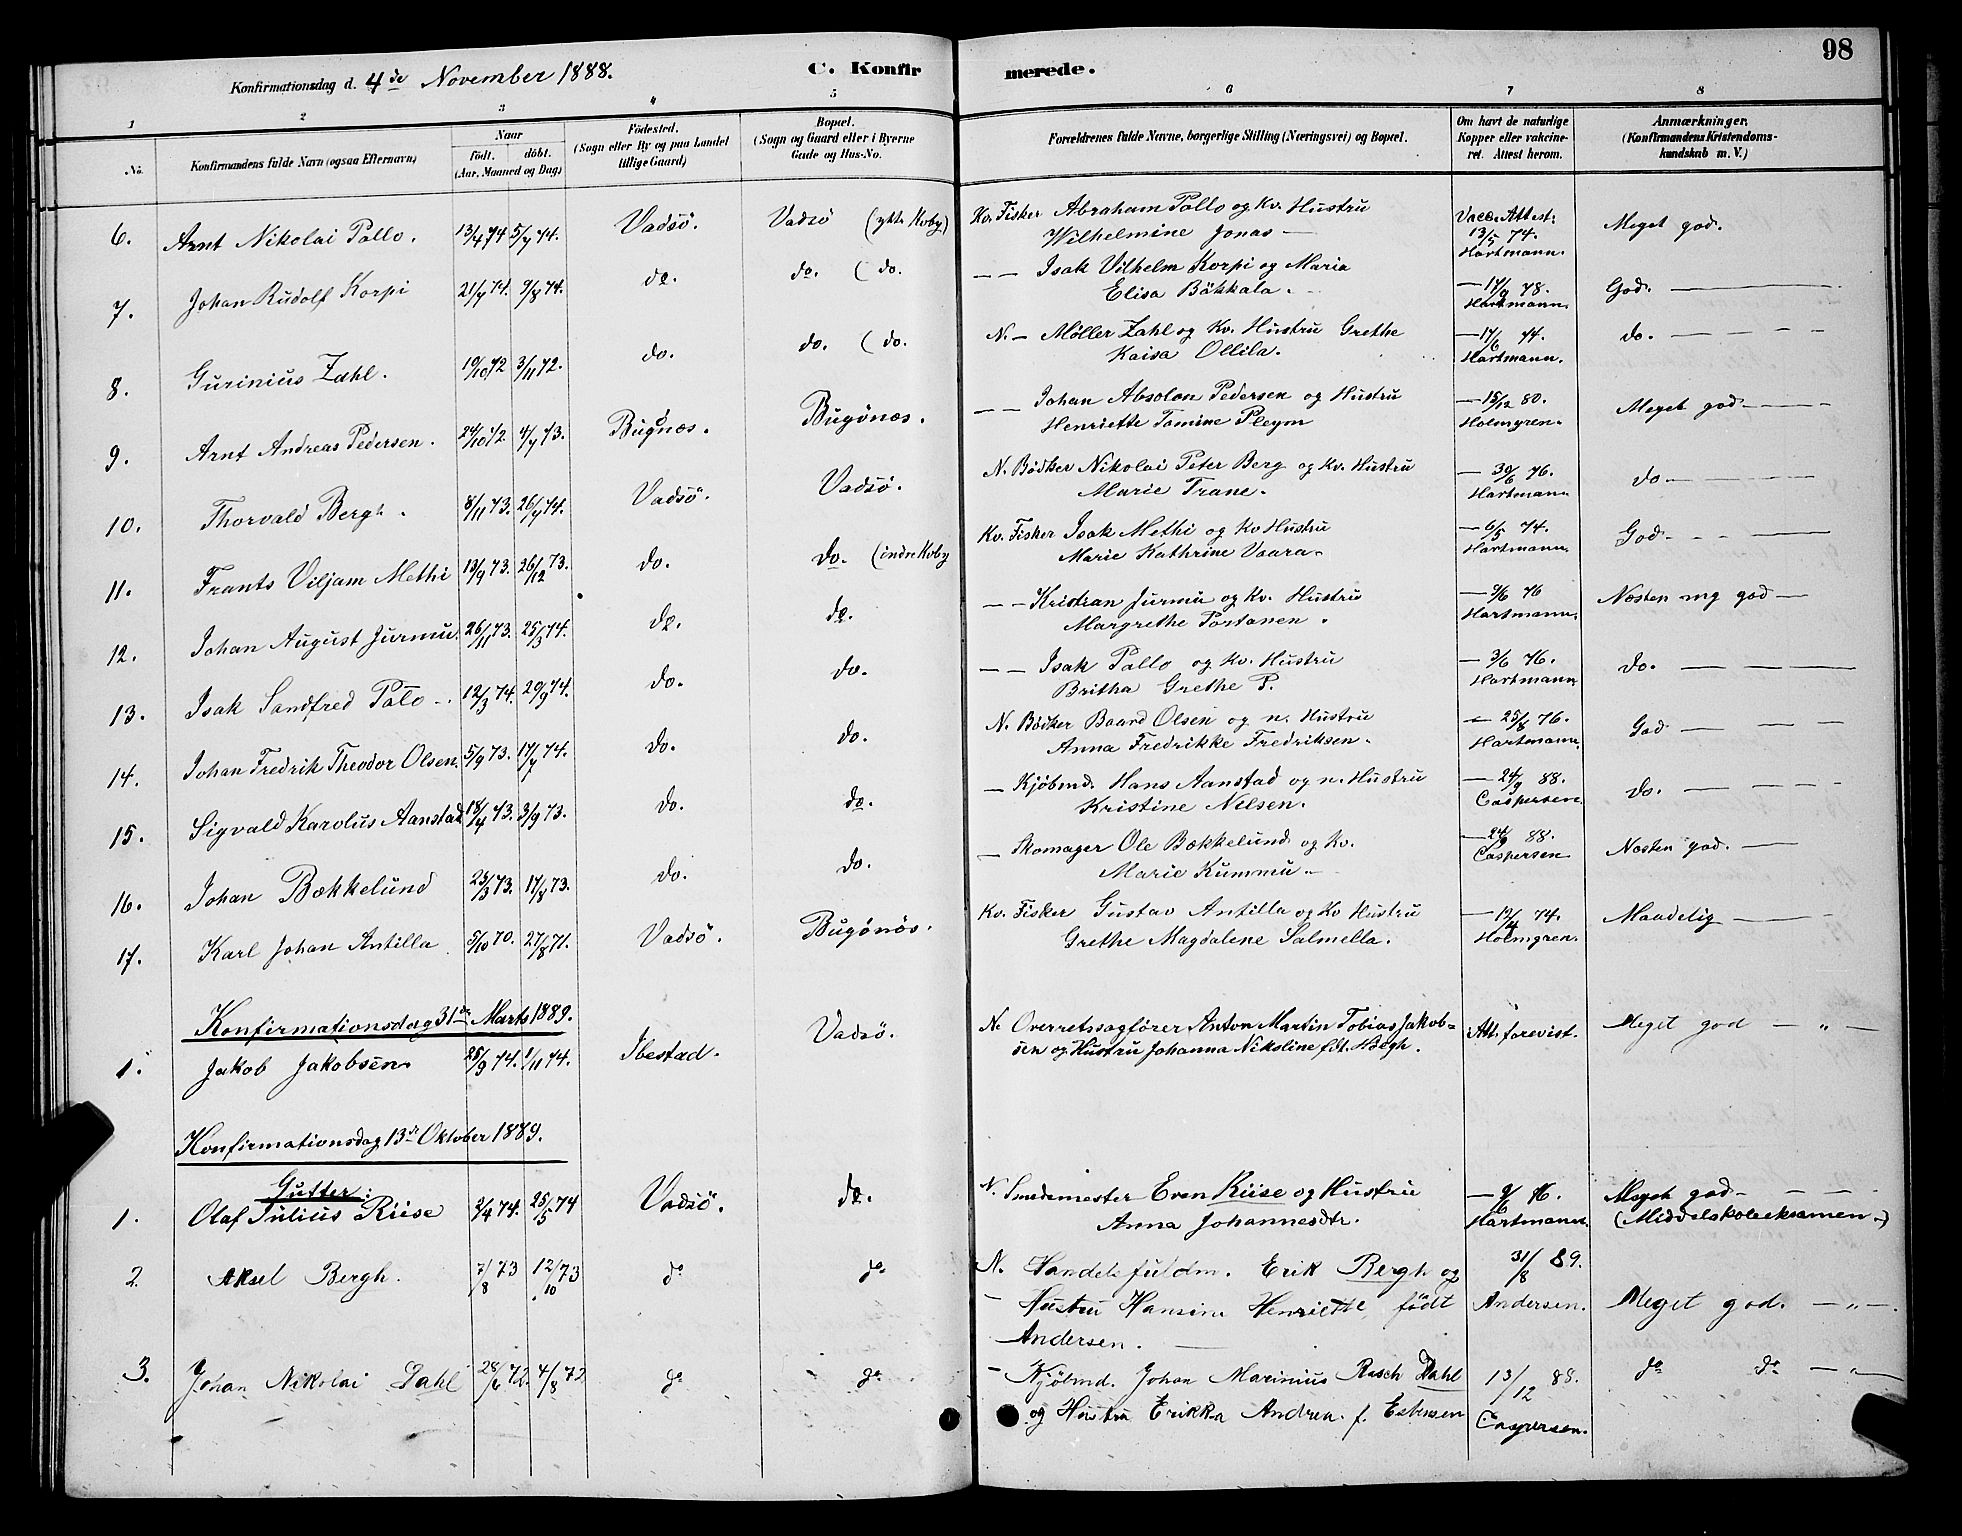 98
Konfirmationsdag d. 4de November 1888.
C. Konfirmerede.
1 2 3 4 5 6 7 8
No. Konfirmandens fulde Navn (ogsaa Efternavn)
Naar født. døbt. (Aar, Maaned og Dag)
Fødested. (Sogn eller By og paa Landet tillige Gaard)
Bopæl. (Sogn og Gaard eller i Byerne Gade og Hus-No.
Forældrenes fulde Navne, borgerlige Stilling (Næringsvei) og Bopæl.
Om havt de naturlige Kopper eller vakcineret. Attest herom.
Anmærkninger. (Konfirmandens Kristendomskundskab m. V.)
6. Arnt Nikolai Pallo. 13/4 74 5/7 74. Vadsö. Vadsö (ytte Kvby) Kv. Fisker Abraham Pallo og Kv. Hustru Vacc. Attest. Meget god.
Wilhelmine Jonas — 13/5 74. Hartmann.
7. Johan Rudolf Korpi 21/7 74. 9/8 74. do. do. ( do. — — Isak Vilhelm Korpi og Maria — 17/9 78. God. —
Elisa Bäkkala. Hartmann.
8. Gurinius Zahl. 19/10 72 3/11 72. do. do. ( do. N. — Møller Zahl og Kv. Hustru Grethe — 17/6 74. do. —
Kaisa Ollila. Hartmann.
9. Arnt Andreas Pedersen. 24/10 72. 4/7 73. Bugnæs. Bugönæs. — — Johan Absolon Pedersen og Hustru — 15/12 80. Meget god —
Henriette Tomine Pleym Holmgren.
10. Thorvald Bergh. 8/11 73. 26/7 74. Vadsö. Vadsö. N. Bödker Nikolai Peter Berg og Kv. Hustru — 30/6 76. do —
Marie Trane. Hartmann
11. Frants Viljam Methi 13/9 73. 26/12 73. do. do. (indre Kvby Kv. Fisker Isak Methi og Kv Hustru — 6/5 74. God. —
Marie Kathrine Vaara. Hartmann.
12. Johan August Jurmu. 26/11 73. 25/3 74. do. do. — — Kristian Jurmu og Kv. Hustru — 3/6 76 Næsten mg god —
Margrethe Tortanen. Hartmann.
13. Isak Sandfred Palo 12/3 74. 29/9 74. do. do. — — Isak Pallo og Kv. Hustru — 3/6 76. do. —
Britha Grethe P. Hartmann
14. Johan Fredrik Theodor Olsen. 5/9 73. 17/7 74. do. do. N. Bödker Baard Olsen og n. Hustru — 25/6 76. God —
Anna Fredrikke Fredriksen. Hartmann.
15. Sigvald Karolus Aanstad 18/4 73. 3/9 73. do. do. — Kjöbmd. Hans Aanstad og n. Hustru — 24/9 88. do. —
Kristine Nilsen. Caspersen.
16. Johan Bækkelund 23/3 73. 17/8 73. do. do. — Skomager Ole Bækkelund og Kv. — 24/9 88. Næsten god. —
Marie Kummu. Caspersen
17. Karl Johan Antilla 5/10 70. 27/8 71. Vadsö. Bugönös. Kv. Fisker Gustav Antilla og Kv Hustru — 19/4 74. Maadelig —
Grethe Magdalene Salmella. Holmgren.
Konfirmationsdag 31te Marts 1889.
1. Jakob Jakobsen 25/9 74. 1/11 74. Ibestad. Vadsö. N. Overretssagfører Anton Martin Tobias Jakob= Att. forevist. Meget god — „ —
sen og Hustru Johanna Nikoline fdt. Høegh.
Konfirmationsdag 13de Oktober 1889.
Gutter:
1. Olaf Julius Riise 2/4 74. 25/5 74 Vadsö. do. N. Smedemester Even Riise og Hustru — 9/6 76. Meget god —
Anna Johannesdtr. Hartmann. (Middelskoleeksamen.)
2. Aksel Bergh. 7/8 73 12/10 73 do do N. Handelsfuldm. Erik Bergh og 31/8 89.
— Hustru Hansine Henriette, født Andersen. Meget god. — „ —
Andersen. —
3. Johan Nikolai Dahl 28/6 72. 4/8 72 do do — Kjöbmd. Johan Marinius Rasch Dahl 13/12 88. do do — „
og Hustru Erikka Andrea f. Esbensen Caspersen.